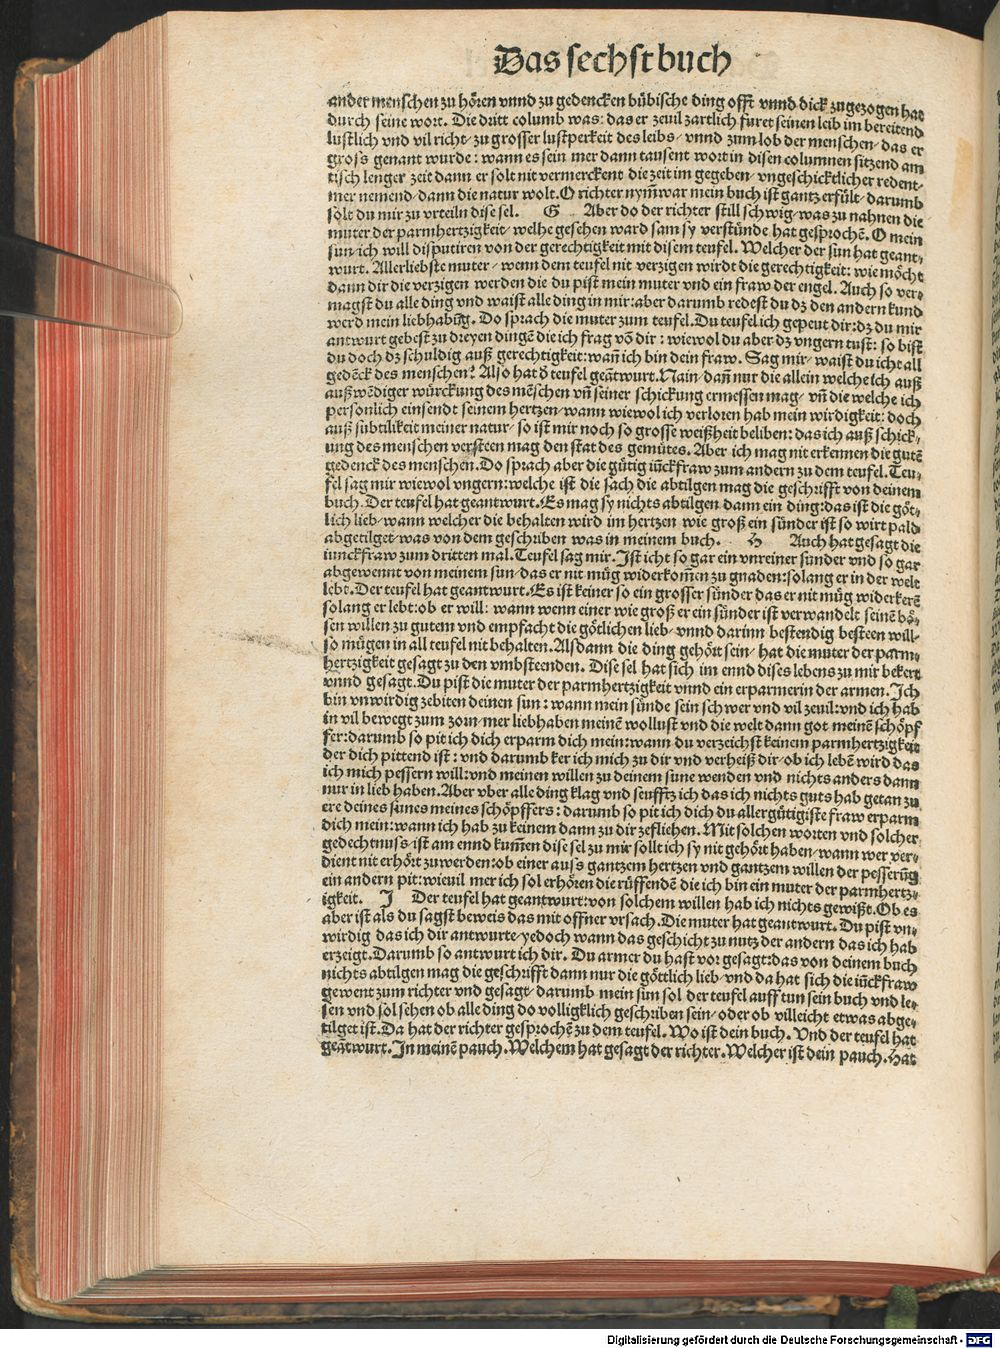 Das sechst buch
ander menschen zu hören vnnd zu gedencken bübische ding offt vnnd dick zugezogen hat
durch seine wort. Die dritt columb was: das er zeuil zartlich füret seinen leib im bereitend
lustlich vnd vil richt/ zu grosser lustperkeit des leibs/ vnnd zum lob der menschen/ das er
gross genant wurde: wann es sein mer dann tausent wort in disen columnen sitzend am
tisch lenger zeit dann er solt nit vermerckent die zeit im gegeben/ vngeschicktlicher redent/
mer nemend/ dann die natur wolt. O richter nym̃war mein buch ist gantz erfült/ darumb
solt du mir zu vrteiln dise sel. G Aber do der richter still schwig/ was zu nahnen die
muter der parmhertzigkeit/ welhe gesehen ward sam sy verstünde hat gesprochẽ. O mein
sun/ ich will disputiren von der gerechtigkeit mit disem teufel. Welcher der sun hat geant/
wurt. Allerliebste muter/ wenn dem teufel nit verzigen wirdt die gerechtigkeit: wie möcht
dann dir die verzigen werden die du pist mein muter vnd ein fraw der engel. Auch so ver/
magst du alle ding vnd waist alle ding in mir: aber darumb redest du dz den andern kund
werd mein liebhabũg. Do sprach die muter zum teufel. Du teufel ich gepeut dir: dz du mir
antwurt gebest zu dreyen dingẽ die ich frag võ dir: wiewol du aber dz vngern tust: so bist
du doch dz schuldig auß gerechtigkeit: wañ ich bin dein fraw. Sag mir/ waist du icht all
gedẽck des menschen? Also hat d̕ teufel geãtwurt. Nain/ dañ nur die allein welche ich auß
außwẽdiger würckung des mẽschen vñ seiner schickung ermessen mag/ vñ die welche ich
persönlich einsendt seinem hertzen/ wann wiewol ich verloren hab mein wirdigkeit: doch
auß subtilikeit meiner natur/ so ist mir noch so grosse weißheit beliben: das ich auß schick/
ung des menschen versteen mag den stat des gemütes. Aber ich mag nit erkennen die gutẽ
gedenck des menschen. Do sprach aber die gütig iũckfraw zum andern zu dem teufel. Teu/
fel sag mir wiewol vngern: welche ist die sach die abtilgen mag die geschrifft von deinem
buch. Der teufel hat geantwurt. Es mag sy nichts abtilgen dann ein ding: das ist die göt/
lich lieb/ wann welcher die behalten wird im hertzen wie groß ein sünder ist so wirt pald
abgetilget/ was von dem geschriben was in meinem buch. H Auch hat gesagt die
iunckfraw zum dritten mal. Teufel sag mir. Ist icht so gar ein vnreiner sünder vnd so gar
abgewennt von meinem sun/ das er nit müg widerkom̃en zu gnaden: solang er in der welt
lebt. Der teufel hat geantwurt. Es ist keiner so ein grosser sünder das er nit müg widerkerẽ
solang er lebt: ob er will: wann wenn einer wie groß er ein sünder ist verwandelt seinẽ bö/
sen willen zu gutem vnd empfacht die götlichen lieb/ vnnd darinn bestendig besteen will/
so mügen in all teufel nit behalten. Alsdann die ding gehört sein/ hat die muter der parm/
hertzigkeit gesagt zu den vmbsteenden. Dise sel hat sich im ennd dises lebens zu mir bekert
vnnd gesagt. Du pist die muter der parmhertzigkeit vnnd ein erparmerin der armen. Ich
bin vnwirdig zebiten deinen sun: wann mein sünde sein schwer vnd vil zeuil: vnd ich hab
in vil bewegt zum zorn/ mer liebhaben meinẽ wollust vnd die welt dann got meinẽ schöpf
fer: darumb so pit ich dich erparm dich mein: wann du verzeichst keinem parmhertzigkeit
der dich pittend ist: vnd darumb ker ich mich zu dir vnd verheiß dir/ ob ich lebẽ wird das
ich mich pessern will: vnd meinen willen zu deinem sune wenden vnd nichts anders dann
nur in lieb haben. Aber vber alle ding klag vnd seufftz ich das ich nichts guts hab getan zu
ere deines sunes meines schöpffers: darumb so pit ich dich du allergütigiste fraw erparm
dich mein: wann ich hab zu keinem dann zu dir zefliehen. Mit solchen worten vnd solcher
gedechtnuss/ ist am ennd kum̃en dise sel zu mir sollt ich sy nit gehört haben/ wann wer ver/
dient nit erhört zu werden: ob einer auss gantzem hertzen vnd gantzem willen der pesserũg
ein andern pit: wieuil mer ich sol erhören die rüffendẽ die ich bin ein muter der parmhertz/
igkeit. I Der teufel hat geantwurt: von solchem willen hab ich nichts gewißt. Ob es
aber ist als du sagst beweis das mit offner vrsach. Die muter hat geantwurt. Du pist vn/
wirdig das ich dir antwurte/ yedoch wann das geschicht zu nutz der andern das ich hab
erzeigt. Darumb so antwurt ich dir. Du armer du hast vor gesagt: das von deinem buch
nichts abtilgen mag die geschrifft dann nur die göttlich lieb/ vnd da hat sich die iũckfraw
gewent zum richter vnd gesagt/ darumb mein sun sol der teufel auff tun sein buch vnd le/
sen vnd sol sehen ob alle ding do volligklich geschriben sein/ oder ob villeicht etwas abge/
tilget ist. Da hat der richter gesprochẽ zu dem teufel. Wo ist dein buch. Vnd der teufel hat
geãtwurt. In meinẽ pauch. Welchem hat gesagt der richter. Welcher ist dein pauch. Hat
Digitalisierung gefördert durch die Deutsche Forschungsgemeinschaft - DFG